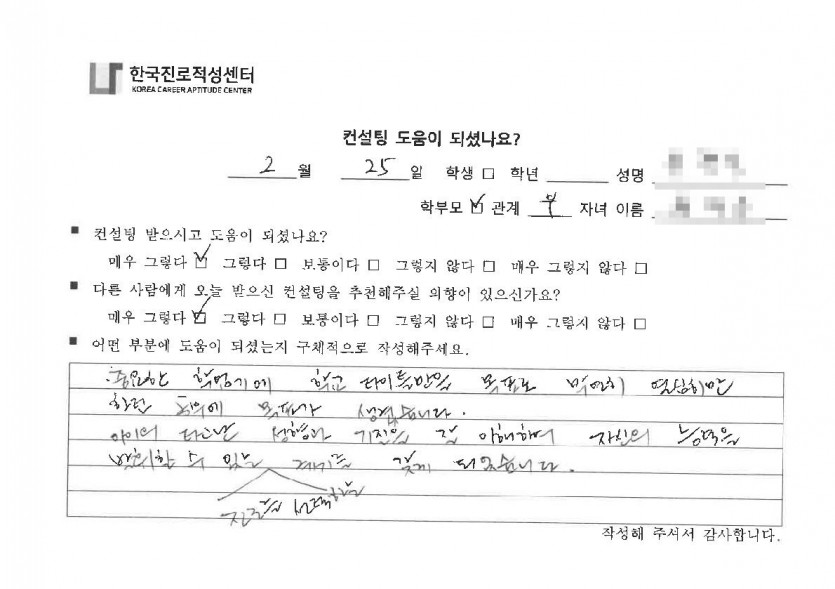 한국진로적성센터
KOREA CAREER APTITUDE CENTER
컨설팅 도움이 되셨나요?
2 월 25 일 학생 □ 학년 성명
학부모 ☑ 관계 부 자녀 이름
■ 컨설팅 받으시고 도움이 되셨나요?
매우 그렇다 ☑ 그렇다 □ 보통이다 □ 그렇지 않다 □ 매우 그렇지 않다 □
■ 다른 사람에게 오늘 받으신 컨설팅을 추천해주실 의향이 있으신가요?
매우 그렇다 ☑ 그렇다 □ 보통이다 □ 그렇지 않다 □ 매우 그렇지 않다 □
■ 어떤 부분에 도움이 되셨는지 구체적으로 작성해주세요.
중요한 학업기에 학교 타이틀만을 목표로 막연히 열심히만
하던 목표가 생겼습니다.
아이의 타고난 성향과 기질을 잘 이해하여 자신의 능력을
발휘할 수 있는 계기를 갖게 되었습니다.
진로를 선택하는
작성해 주셔서 감사합니다.